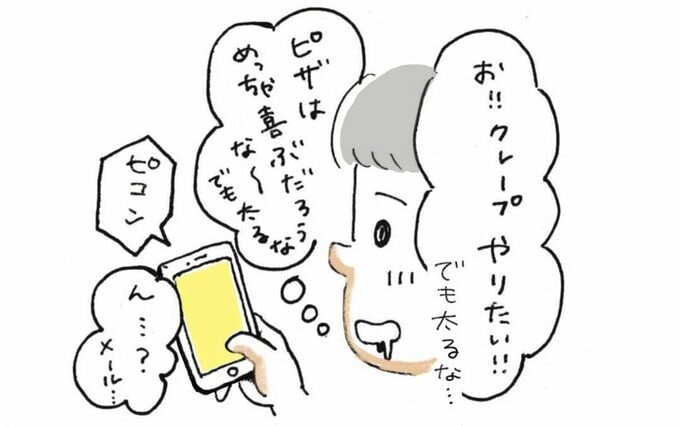 お!!クレープ
やりたい!!
でも太るな…
ピザは
めっちゃ喜ぶだろう
な〜
でも太るな
ピコン
ん…?
メール…